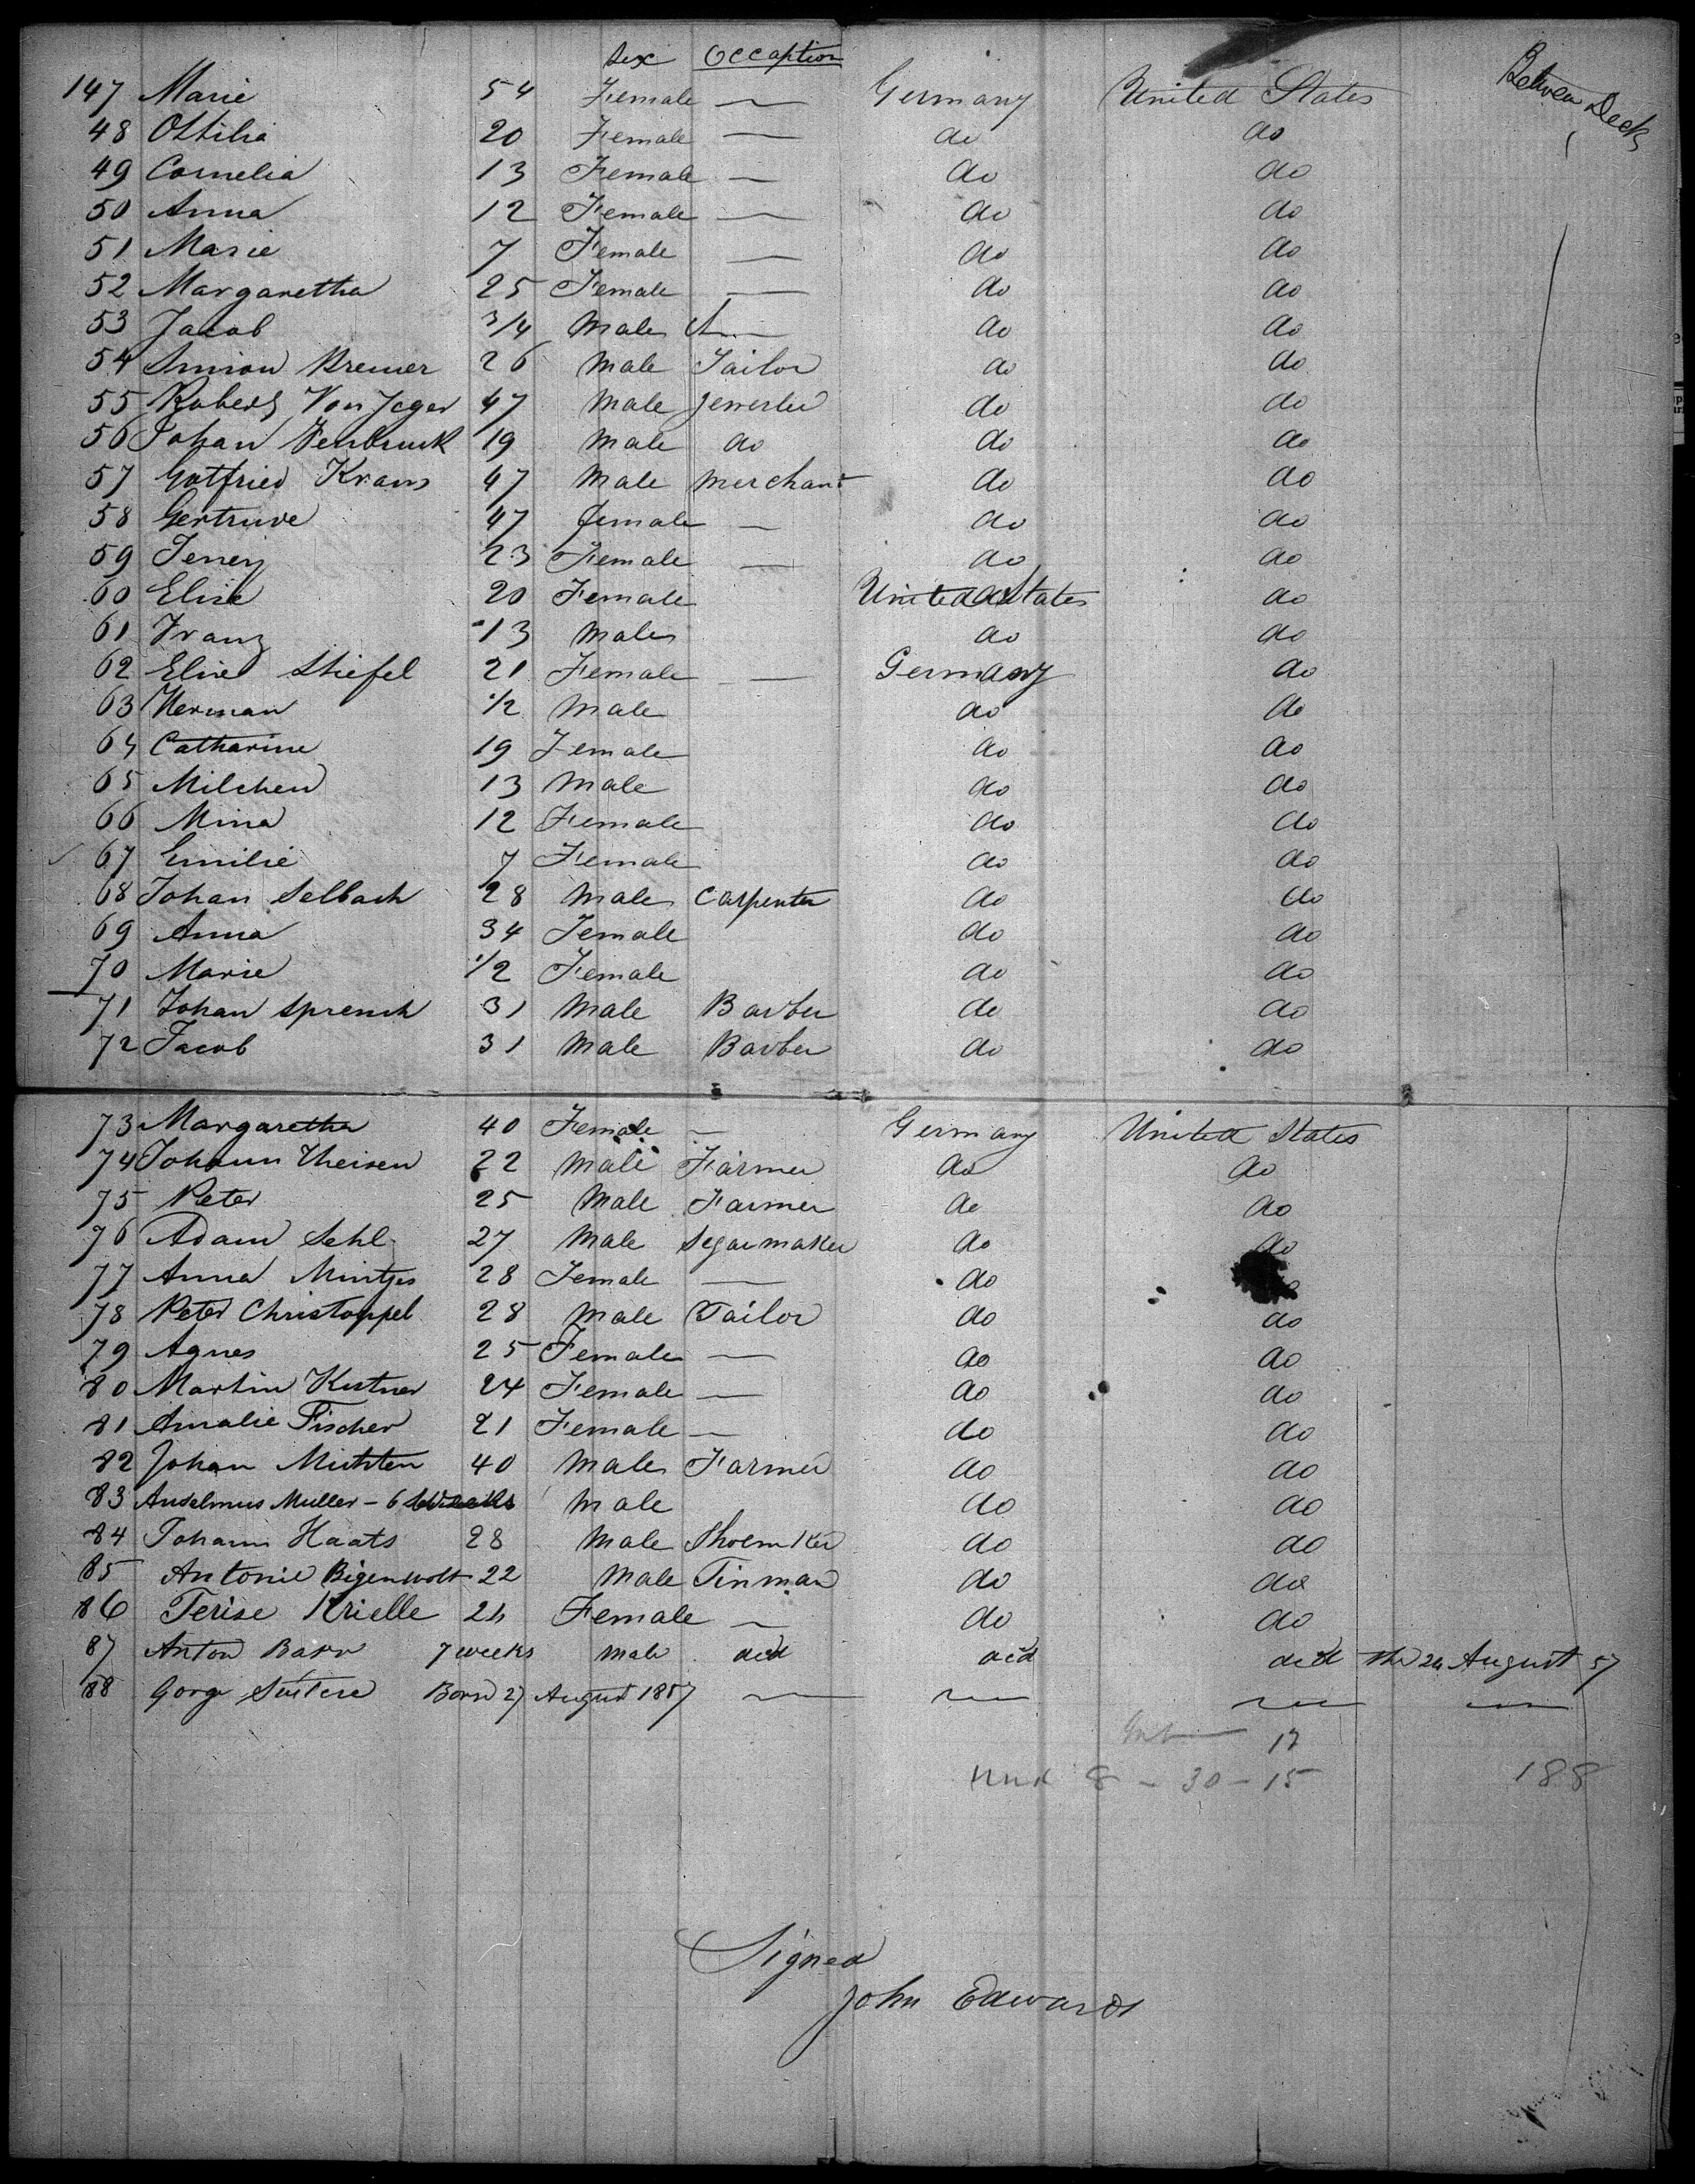 Sex Occaption
147 Marie 54 Female — Germany United States Between Decks
48 Ottilia 20 Female — do do
49 Cornelia 13 Female — do do
50 Anna 12 Female — do do
51 Marie 7 Female — do do
52 Margaretha 25 Female — do do
53 Jacob 3/4 Male do do
54 Simion Bremer 26 Male Tailor do do
55 Robert Von Jeger 47 Male do do
56 Johan 19 Male do do do
57 Gotfried Kraus 47 Male Merchant do do
58 Gertrude 47 female — do do
59 Jenny 23 Female — do do
60 Elise 20 Female United States do
61 Franz 13 Male do do
62 Elise Stiefel 21 Female — Germany do
63 Herman 1/2 Male do do
64 Catharine 19 Female do do
65 Milchen 13 Male do do
66 Mina 12 Female do do
67 Emilie 7 Female do do
68 Johan Selbach 28 Male Carpenter do do
69 Anna 34 Female do do
70 Marie 1/2 Female do do
71 Johan Sprenck 31 Male Barber do do
72 Jacob 31 Male Barber do do
73 Margaretha 40 Female — Germany United States
74 Johann Theisen 22 Male Farmer do do
75 Peter 25 Male Farmer do do
76 Adam Sehl 27 Male Segarmaker do do
77 Anna Mintges 28 Female — do
78 Peter Christoppel 28 Male Tailor do do
79 Agnes 25 Female — do do
80 Martin Kutner 24 Female — do do
81 Amalie Fischer 21 Female — do do
82 Johan 40 Male Farmer do do
83 Anselmus Muller - 6 Male do do
84 Johann Haats 28 Male Shoemker do do
85 Antonie Bigenwolt 22 Male Tinman do do
86 Terise Krielle 24 Female — do do
87 Anton Barr 7 weeks Male died died died the 24 August 57
88 Gorge Born 27 August 1857 — — — —
17
8 - 30 - 15 188
Signed
John Edwards